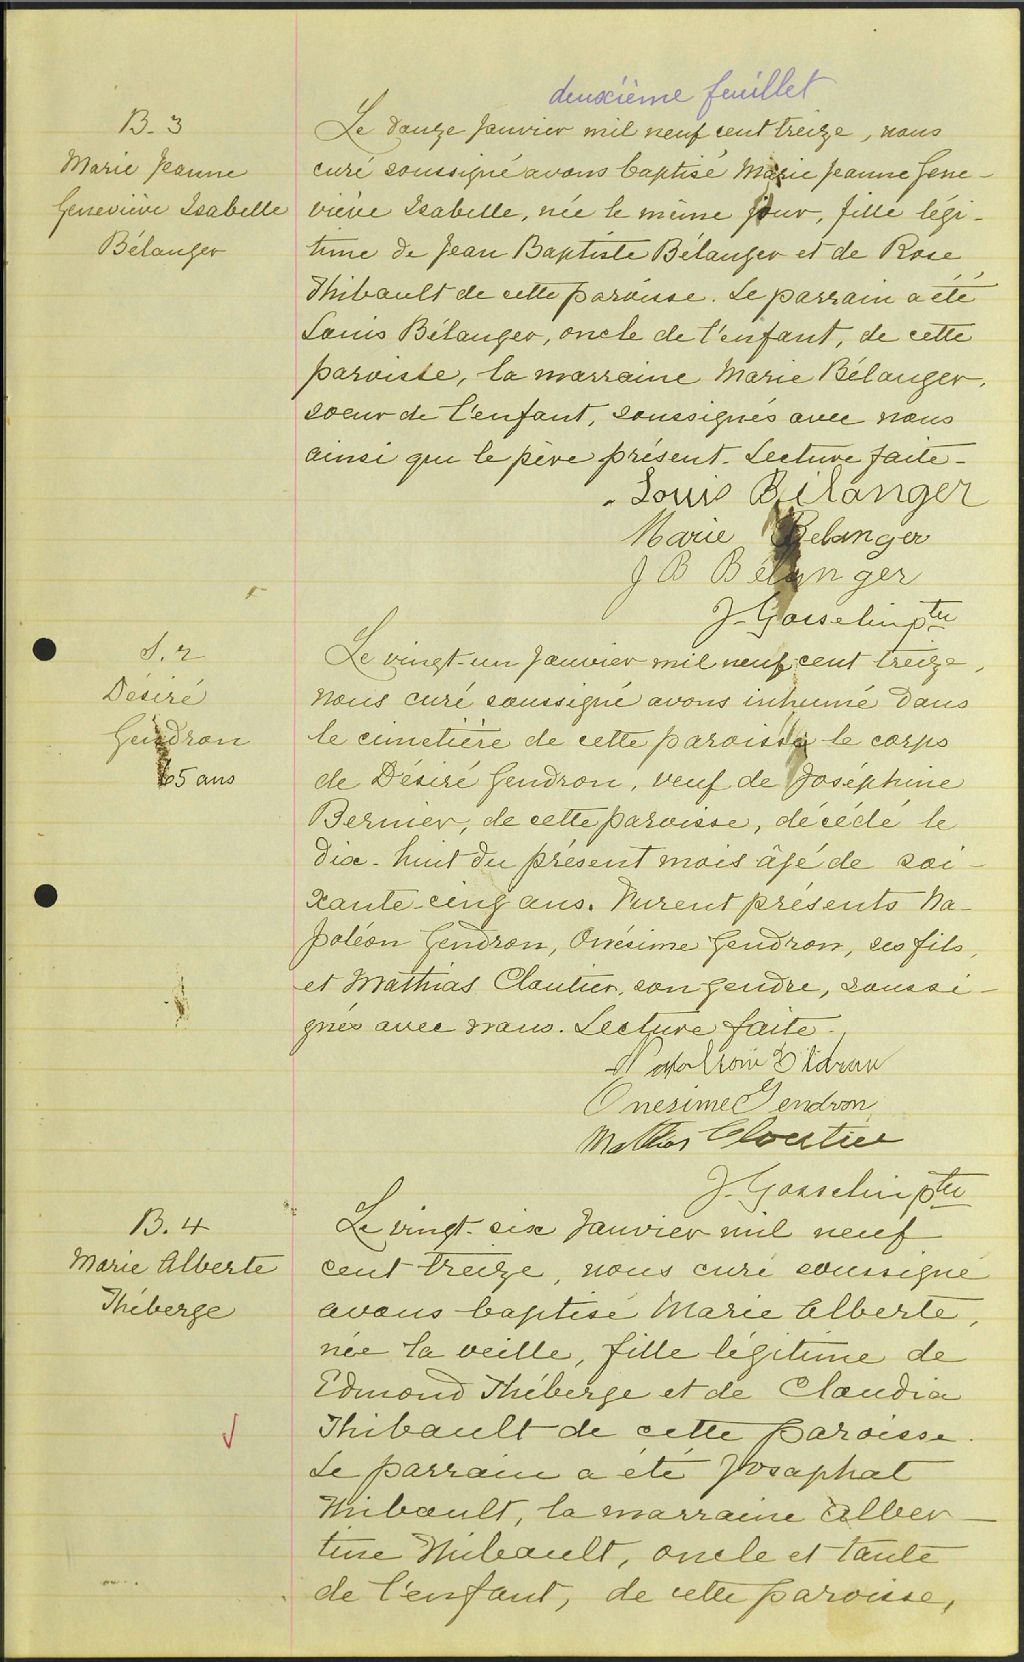 deuxième feuillet
B. 3
Marie Jeanne
Geneviève Isabelle
Bélanger
Le douze janvier mil neuf cent treize, nous
curé soussigné avons baptisé Marie Jeanne Gene-
viève Isabelle, née le même jour, fille légi-
time de Jean Baptiste Bélanger et de Rose
Thibault de cette paroisse. Le parrain a été
Louis Bélanger, oncle de l'enfant, de cette
paroisse, la marraine Marie Bélanger,
soeur de l'enfant, soussignés avec nous
ainsi que le père présent. Lecture faite.
Louis Bélanger
Marie Belanger
J B Bélanger
J. Gosselin ptre
S. 2
Désiré
Gendron
65 ans
Le vingt-un janvier mil neuf cent treize,
nous curé soussigné avons inhumé dans
le cimetière de cette paroisse le corps
de Désiré Gendron, veuf de Joséphine
Bernier, de cette paroisse, décédé le
dix-huit du présent mois âgé de soi-
xante-cinq ans. Furent présents Na-
poléon Gendron, Onésime Gendron, ses fils,
et Mathias Cloutier, son gendre, soussi-
gnés avec nous. Lecture faite.
Onesime Gendron
Mathias Cloutier
J. Gosselin ptre
B. 4
Marie Alberte
Théberge
Le vingt-six janvier mil neuf
cent treize, nous curé soussigné
avons baptisé Marie Alberte,
née la veille, fille légitime de
Edmond Théberge et de Claudia
Thibault de cette paroisse.
Le parrain a été Josaphat
Thibault, la marraine Alber-
tine Thibault, oncle et tante
de l'enfant, de cette paroisse,